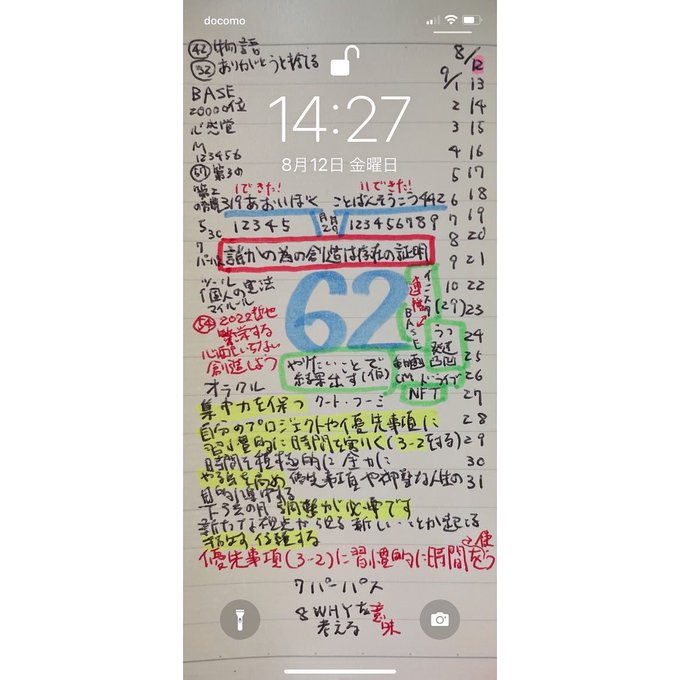 docomo
㊷物語
㉜ありがとうと捨てる
8/12
14:27
8月12日 金曜日
BASE
20000位
心感覚
M
123456
第2
1できた!
11できた!
319あおいほく
ことばんそうこう442
12345
123456789
530
7
誰かの為の創造は存在の証明
ツール
個人の憲法
マイルール
62
インスタ
連携
BASE
やりたいことで
結果出す(仮)
動画
CM
ドライブ
NFT
54
2022
繁栄する
創造しよう
オラクル
集中力を保つ
クート・フーミ
自分のプロジェクトや優先事項に
習慣的に時間を
(3-2をする)
時間を積極的に
やる気を高め
優先事項や神聖な人生の
目的に集中する
下弦の月 調整が必要です
新たな視点から見る新しいことが起こる
手放す 信頼する
優先事項(3-2)に習慣的に時間を使う
7パーパス
8WHYを意味
考える
9/1 13
2 14
3 15
4 16
5 17
6 18
7 19
8 20
9 21
10 22
(29)23
24
25
26
27
28
29
30
31